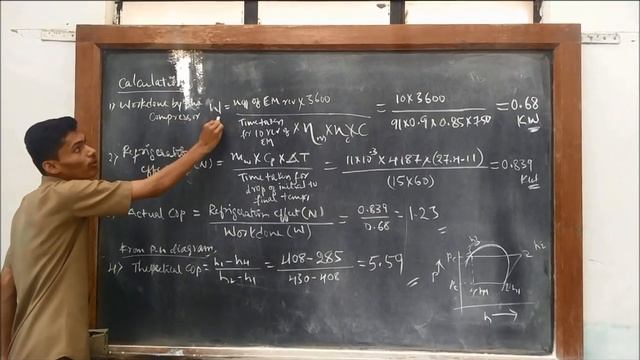 Calculation
1) Workdone by the Compressor W = no of EM rev × 3600 / Time taken for 10 rev of EM × ηm × ηc × C = 10 × 3600 / 91 × 0.9 × 0.85 × 750 = 0.68 KW
2) Refrigeration effect (N) = mw × Cp × ΔT / Time taken for drop of initial to final temp = 11×10⁻³ × 4187 × (27.4-11) / (15×60) = 0.839 KW
Actual COP = Refrigeration effect (N) / Workdone (W) = 0.839 / 0.68 = 1.23
From P-h diagram
4) Theoretical COP = h1-h4 / h2-h1 = 408-285 / 430-408 = 5.59
h3
h2
Pc
2
P
Pe
4 h4
1 h1
h →